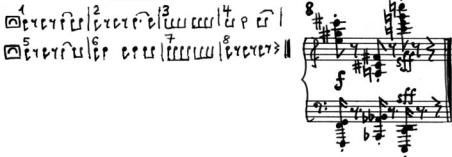 1 2 3 4
5 6 7 8
8
f sff
sff